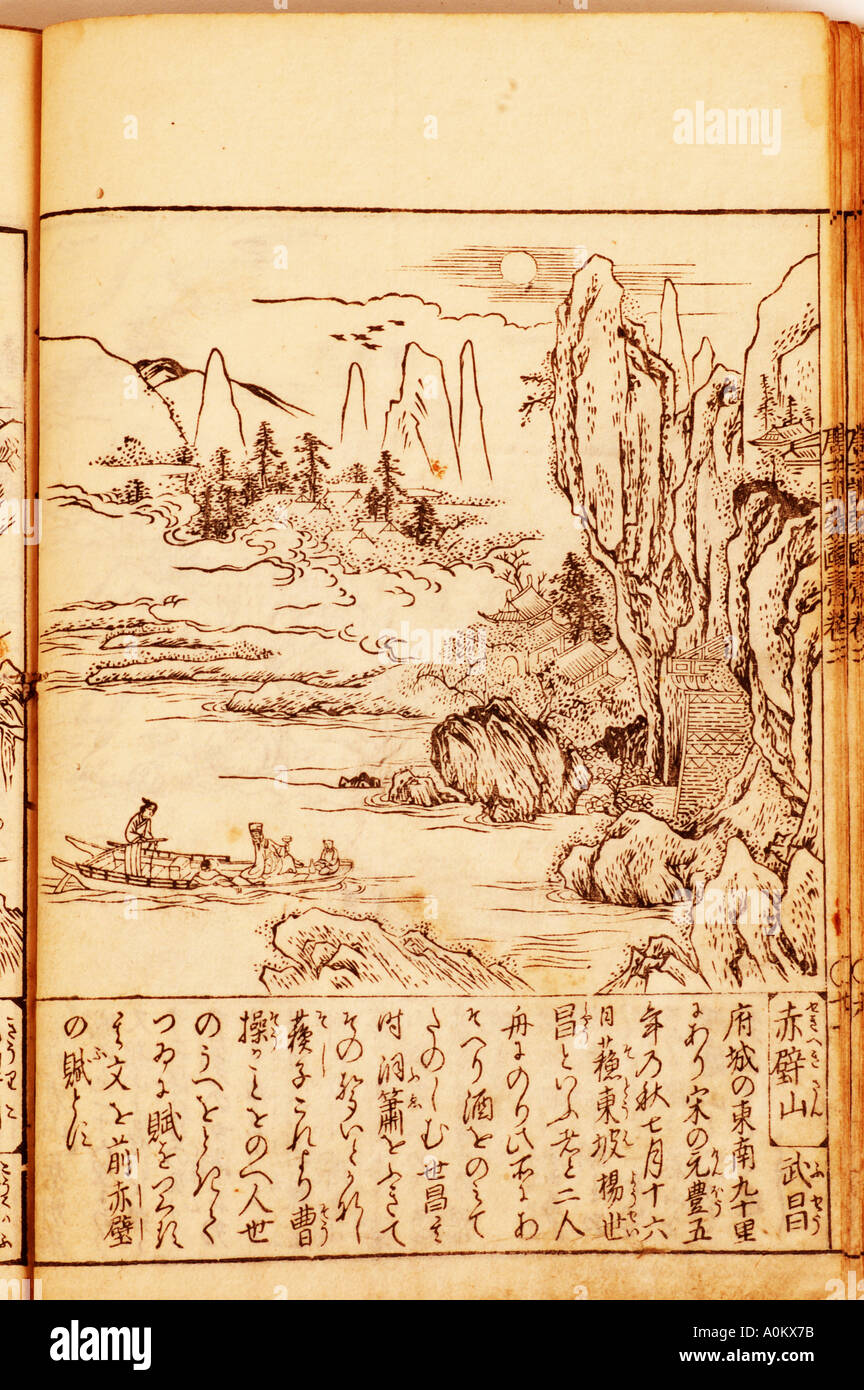 alamy
せきへきさん
赤壁山
ふせう
武昌
府城の東南九十里
にあり宋の元豊五
年乃秋七月十六
日蘓東坡楊世
昌といふ者と二人
舟にのり此所にあ
そへり酒をのみて
たのしむ世昌其
時洞簫をふきて
その聲いとかなし
蘓子これより曹
操がことをのべ人世
のうへを
つゐに賦をつくる
其文を前赤壁
の賦とす
alamy
Image ID: A0KX7B
www.alamy.com